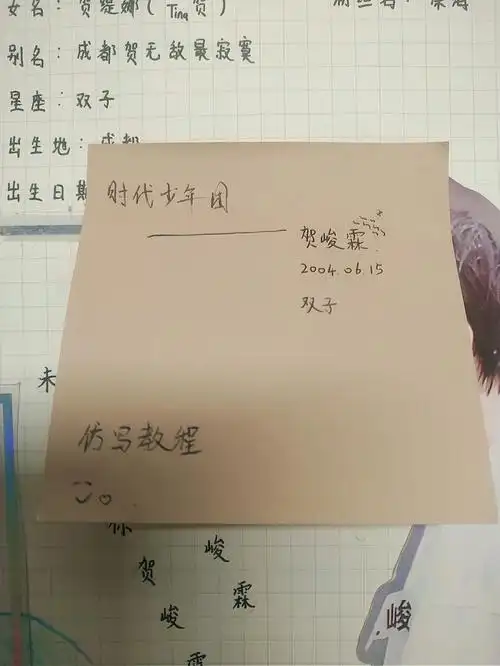 女名：贺缇娜（Tina贺）
别名：成都贺无敌最寂寞
星座：双子
出生地：成都
出生日期
时代少年团
贺峻霖
2004.06.15
双子
未
仿写教程
霖
贺
峻
峻
霖
霖
峻